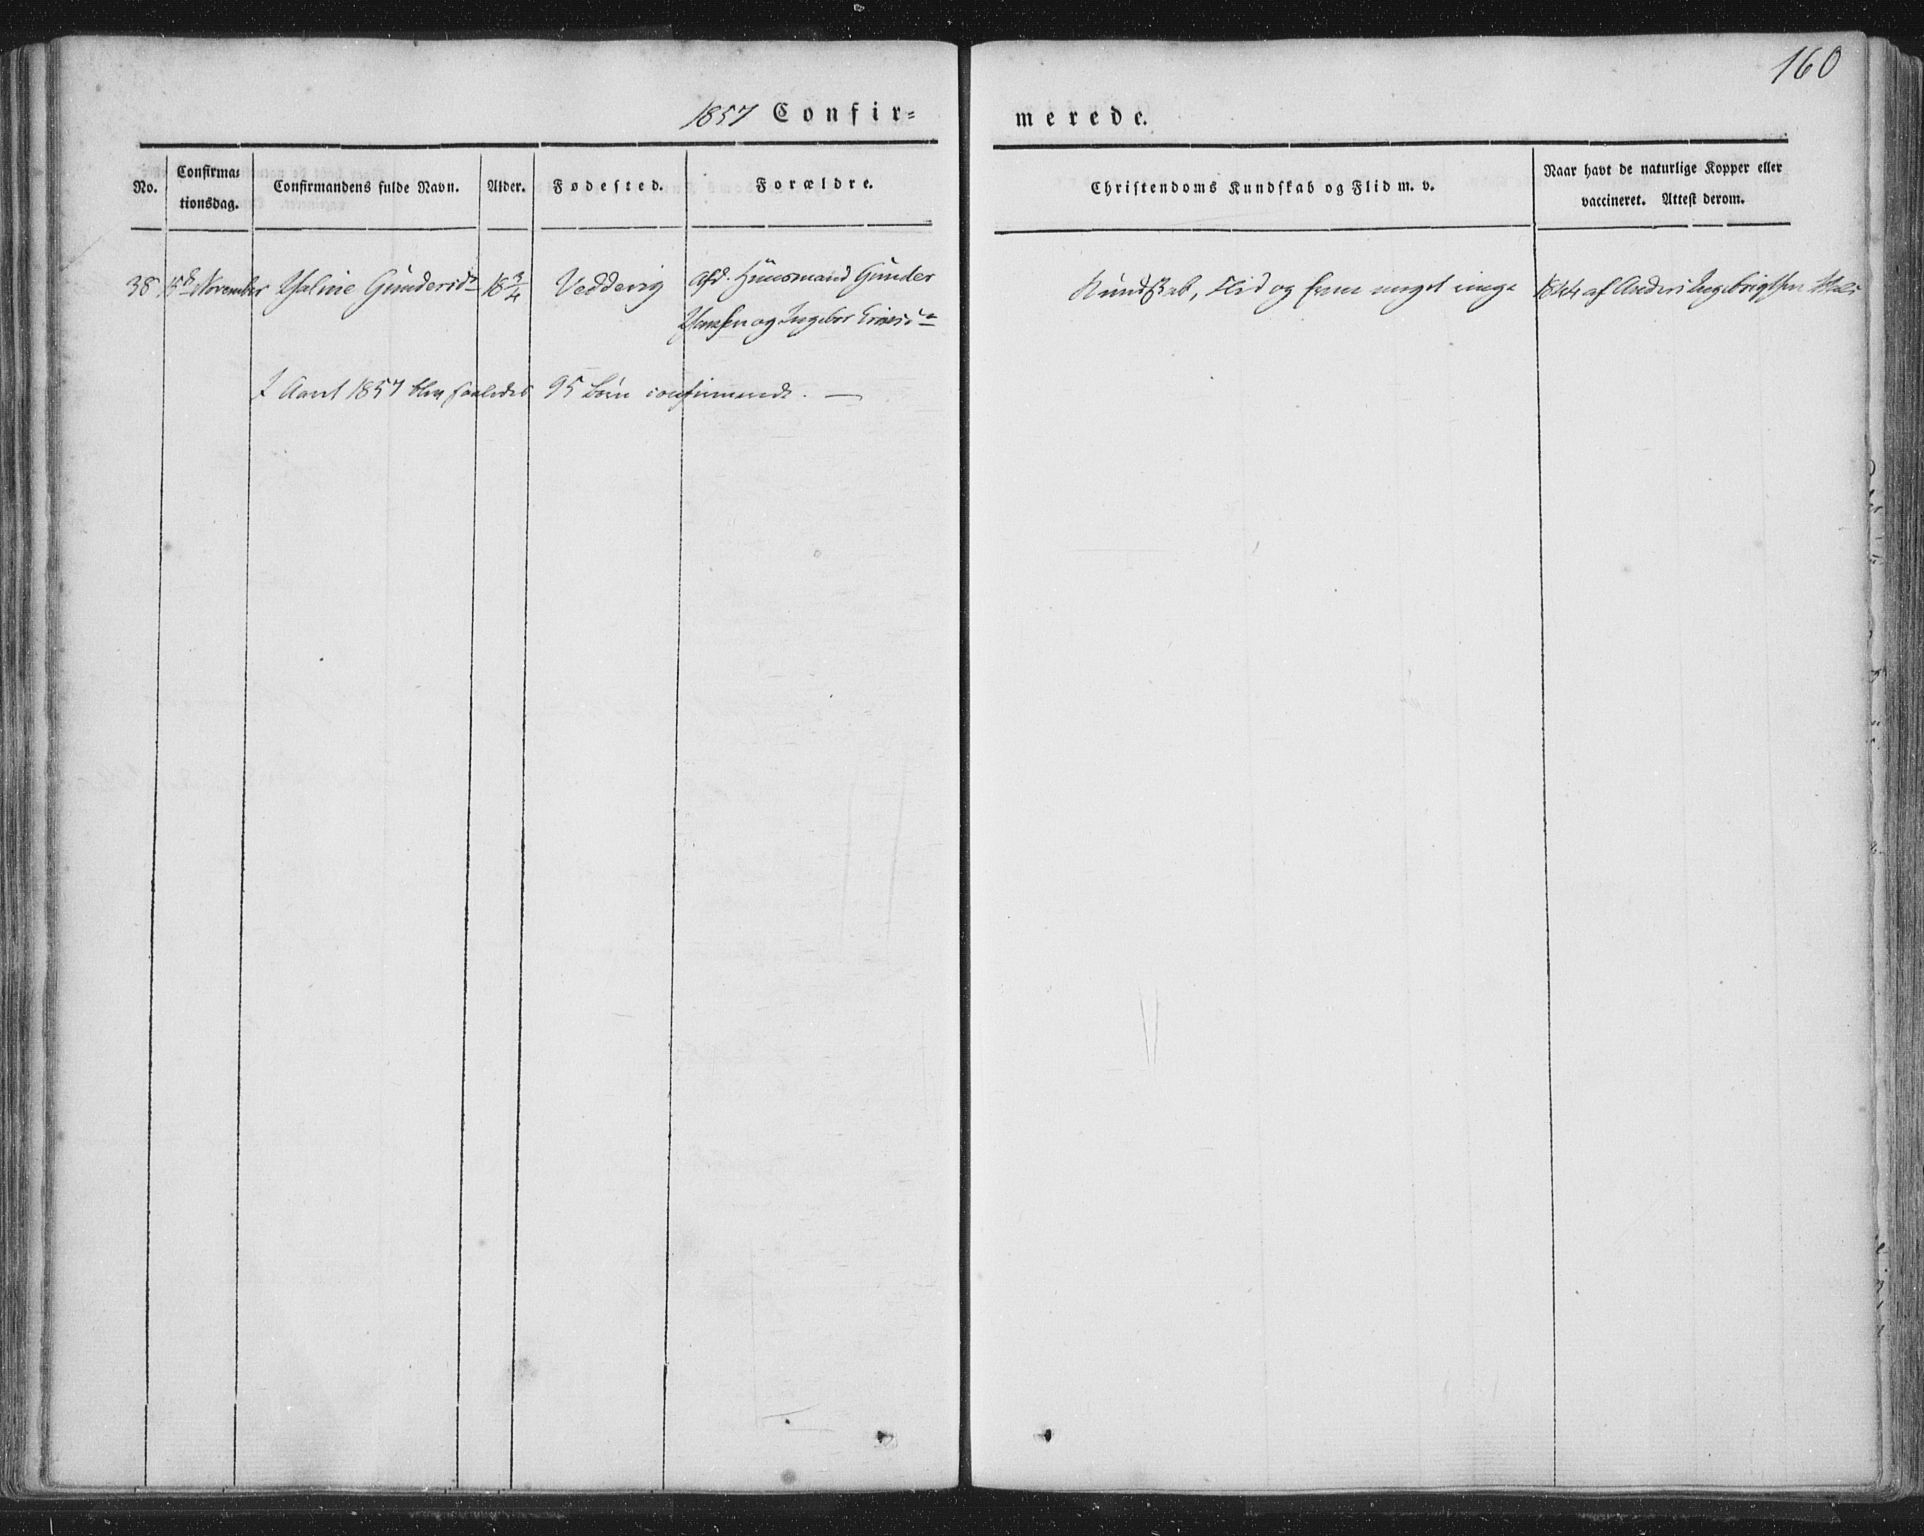 160
1857 Confir=
merede.
No.
Confirma=
tionsdag.
Confirmandens fulde Navn.
Alder.
Fødested.
Forældre.
Christendoms Kundskab og Flid m. v.
Naar havt de naturlige Kopper eller
vaccineret. Attest derom.
38. November Gundersd 18 3/4 Veddevig afd. Huusmand Gunder
og Ingebor
Kundskab, Flid og meget 1844 af Anders Ingebrigtsen
I Aaret 1857 blev saaledes 95 Børn confirmerede. —